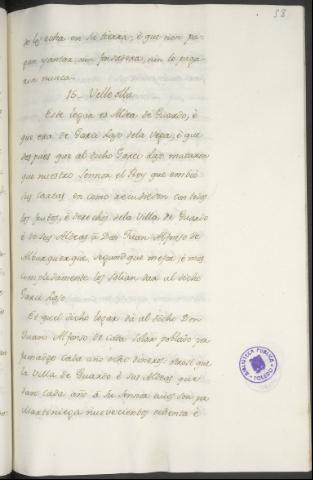 58
de lo echa en su tierra, é que non pa-
gan yantar, nin fonsadera, nin le paga-
ron nunca.
15. Velbolla
Este logar es Aldea de Guardo, é
que era de Garci Laso dela Vega, é que
despues que al dicho Garci Laso mataron
que nuestro Sennor el Rey que embió
sus cartas en como recudiesen con todos
los fruttos, é derechos dela Villa de Guardo
é de ses Aldeas a Don Juan Alfonso de
Alburquerque, segund que mejor é mas
complidamente los solian dar al dicho
Garci Laso.
Et quel dicho logar dá al dicho Don
Juan Alfonso de cada solar poblado por
fumadgo cada año ocho dineros. otrosi que
la Villa de Guardo é sus Aldeas que
dan cada año á su Sennor cuios son por
Martiniega nuevecientos ochenta é
BIBLIOTECA PUBLICA
TOLEDO